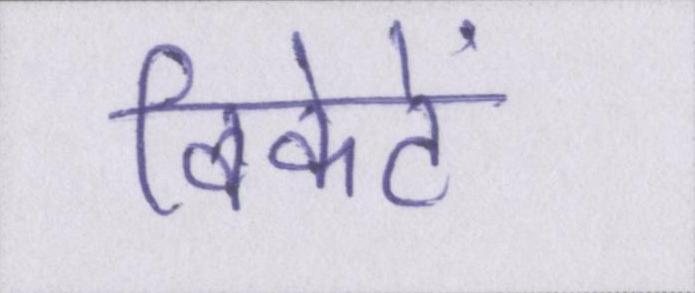 विकेटें